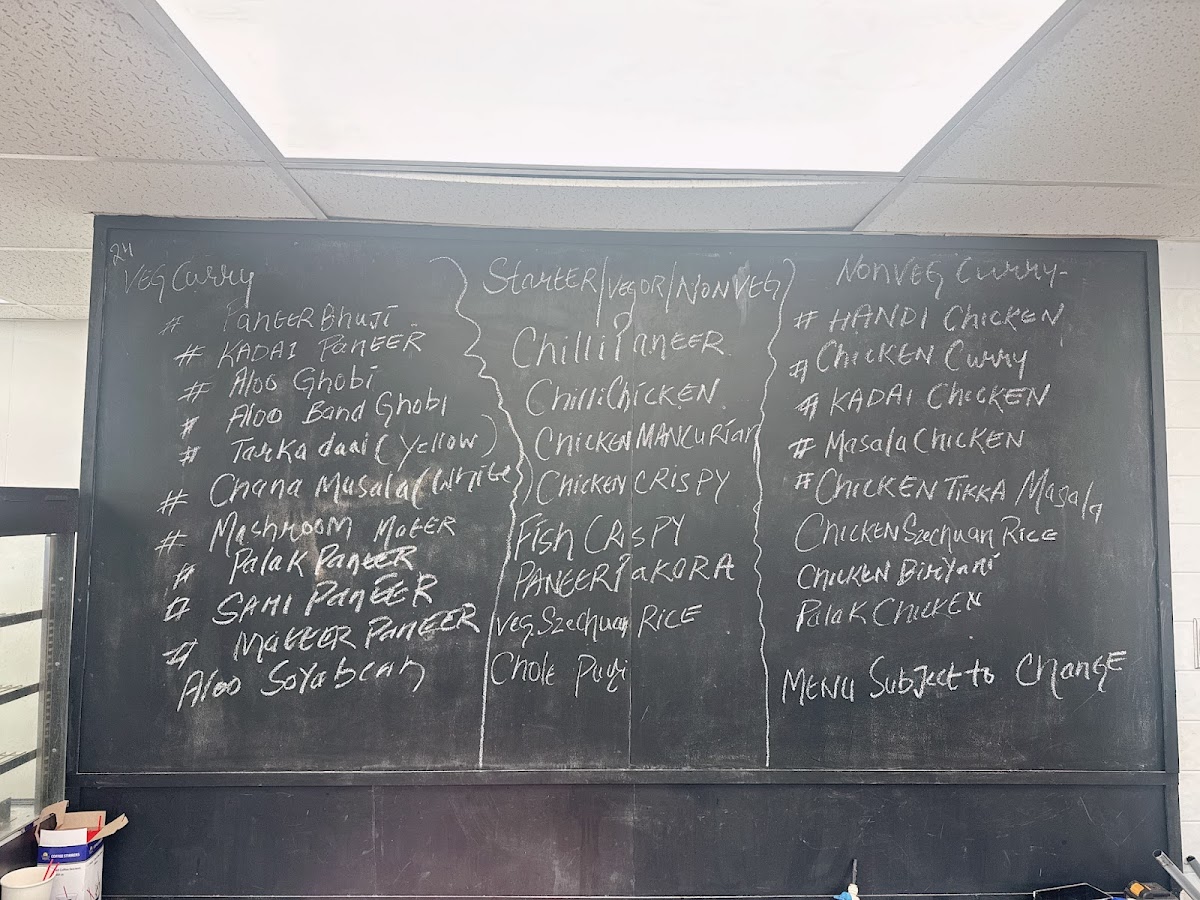 24
VEG Curry
# PANEER Bhuji
# KADAI PANEER
# Aloo Ghobi
# Aloo Band Ghobi
# Tarka daal (Yellow)
# Chana Masala (White)
# Mashroom Mater
# Palak PANEER
# SAHI PANEER
# MATEER PANEER
Aloo Soyabean
Starter/VEG OR/NONVEG
Chilli PANEER
Chilli CHICKEN
CHICKEN MANCURIAN
CHICKEN CRISPY
Fish CRISPY
PANEER PAKORA
Veg Szechuan RICE
Chole Puri
NONVEG Curry
# HANDI CHICKEN
# CHICKEN Curry
# KADAI CHICKEN
# Masala CHICKEN
# CHICKEN TIKKA Masala
CHICKEN Szechuan RICE
CHICKEN Biryani
Palak CHICKEN
MENU Subject to CHANGE
COFFEE STIRRERS